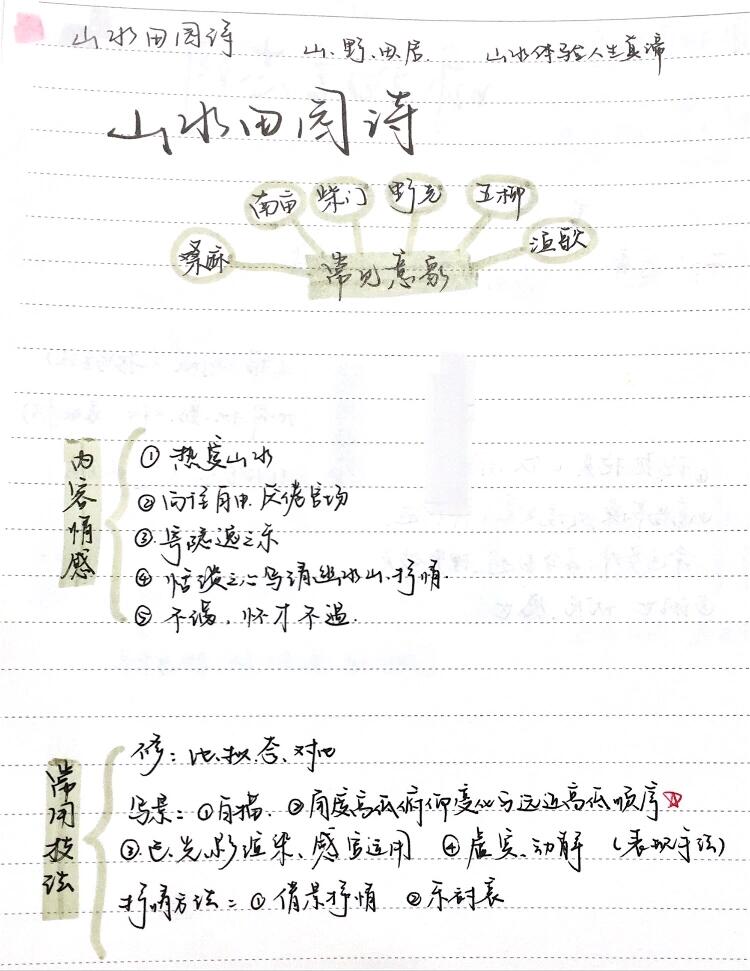 山水田园诗 山、野、田居 山水体验人生真谛
山水田园诗
南亩 柴门 野老 五柳
桑麻 渔歌
常见意象
内容情感
① 热爱山水
② 向往自由.厌倦官场
③ 寄隐逸之乐
④ 恬淡之心写清幽水山.抒情.
⑤ 不满、怀才不遇.
常用技法
修：比.拟.夸.对比
写景：①白描. ②角度高低俯仰变化与远近高低顺序
③色.光.影渲染、感官运用 ④虚实、动静 (表现手法)
抒情方法：①借景抒情 ②乐衬哀